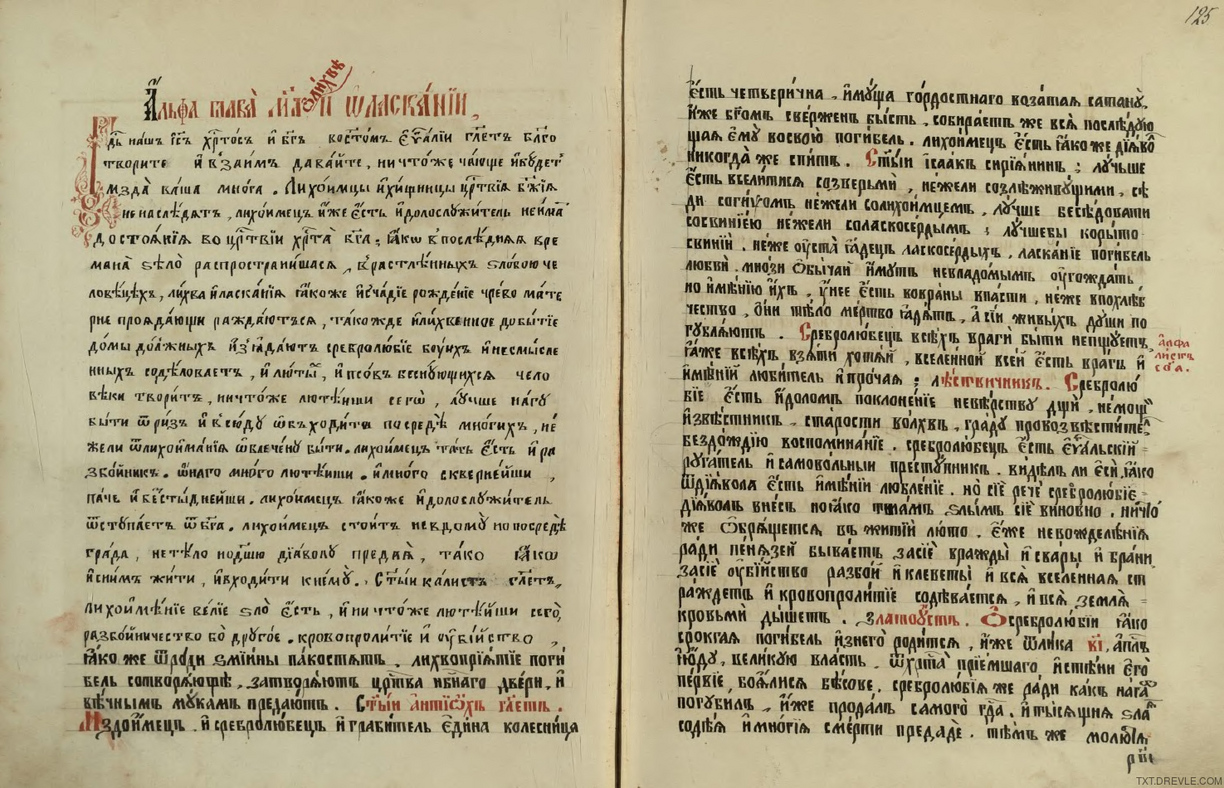 125
о лихвѣ
Альфа глава м҃а и ѿ ласкании
Гдь нашъ і҆с҃ъ хр҃тосъ и бг҃ъ во с҃томъ еѵ҃аліи гл҃етъ благо
творите и взаимъ давайте, ничтоже чающе и будетъ
мзда ваша многа. Лихоимцы и хищницы цр҃твія б҃жія
не наслѣдятъ, лихоимецъ иже есть идолослужитель не имать
достоянія во цр҃твіи хр҃та бг҃а; яко в послѣдняя вре
мана ѕѣло распространишася, в растлѣнныхъ ѕлобою че
ловѣцѣхъ, лихва и ласканія якоже исчадіе рожденіе чрево мате
рне проядающи раждаются, такожде и лихвенное добытіе
домы должныхъ изъядаютъ сребролюбіе боуихъ и несмысле
нныхъ содѣловаетъ, и лютыхъ, и псовъ беснующихся чело
вѣки творитъ, ничтоже лютѣиши сегѡ, лучше нагу
быти ѿ ризъ и всюду ѡбъходити посредѣ многихъ, не
жели ѿ лихоиманія ѡблечену быти. лихоимецъ тать есть и ра
збойникъ. ѡнаго много лютѣиши. и много сквернеиши
паче и бестыднеиши. лихоимецъ якоже идолослужитель
ѿступаетъ ѿ бг҃а. лихоимецъ стоитъ не в дому но посредѣ
града, не тѣло но дш҃ю діаволу предая, тако якѡ
и с нимъ жити, и входити к нему. С҃тыи калистъ гл҃етъ.
Лихоимѣніе веліе ѕло есть, и ничтоже лютѣйши сего,
разбойничество бо другое. кровопролитіе и убійство,
якоже ѿроди ѕміины пакостятъ. лихвопріятіе поги
бель сотворяютъ, затворяютъ цр҃тва нб҃наго двери, и
вѣчнымъ мукамъ предаютъ. С҃тыи антиохъ гл҃етъ.
Мздоимецъ и сребролюбецъ и грабитель едина колесница
есть четверична, имуща гордостнаго возатая сатану.
иже бг҃омъ сверженъ бысть, собираетъ же вся послѣдую
щая ему во свою погибель. лихоимецъ есть якоже діяво
никогда же спитъ. С҃тыи ісаакъ сиріянинъ; лучше
есть вселитися со зверьми, нежели со злѣ живущими, сѣ
ди со гнуѡмъ нежели со лихоимцемъ, лучше беседовати
со свиніею нежели со ласкосердымъ; лучше бы корыто
свиніи, неже уста ядецъ ласкосердыхъ, ласканіе погибель
любви. мнози ѻбычаи имутъ не владомымъ угождать
но имѣнію ихъ, унее есть во враны впасти, неже в похлеб
чество, они тѣло мертво ядятъ, а сіи живыхъ души по
губляютъ. Сребролюбецъ всѣхъ враги быти непщуетъ,
яже всѣхъ взяти хотяй, вселенной всей есть врагъ и
имѣній любитель и прочая; лѣствичникъ. Сребролю
біе есть идоломъ поклоненіе невѣрству дщи, немощ
извѣстникъ, старости волхвъ, гладу провозвѣститель
бездождію воспоминаніе. сребролюбецъ есть еѵ҃альскій
ругатель и самовольныи преступникъ. видѣлъ ли еси, яко
ѿ діявола есть имѣній любленіе. но сіе рече сребролюбіе
діяволъ внесъ но яко тѣламъ ѕлымъ сіе виновно. ничто
же ѻбрящется въ житіи люто. еже не вожделѣнія
ради пенязей бываетъ за сіе вражды и свары и брани
за сіе убійство разбой и клеветы и вся вселенная ст
раждетъ и кровопролитіе содѣвается, и вся земля
кровьми дышетъ. златоустъ. Ѻ сребролюбіи яко
сроктая погибель изъ него родится, иже ѡ лика в҃і, ап҃лъ
іюду, великую власть ѿ хр҃та пріемшаго, и стѣни его
первіе, боялися бѣсове, сребролюбія же ради какъ нага
погубилъ, иже продалъ самого гд҃а. и тысящия ѕла
содѣя и многія смерти предаде. тѣмъ же молюся
альфа
листъ
с҃о҃а.
TXT.DREVLE.COM